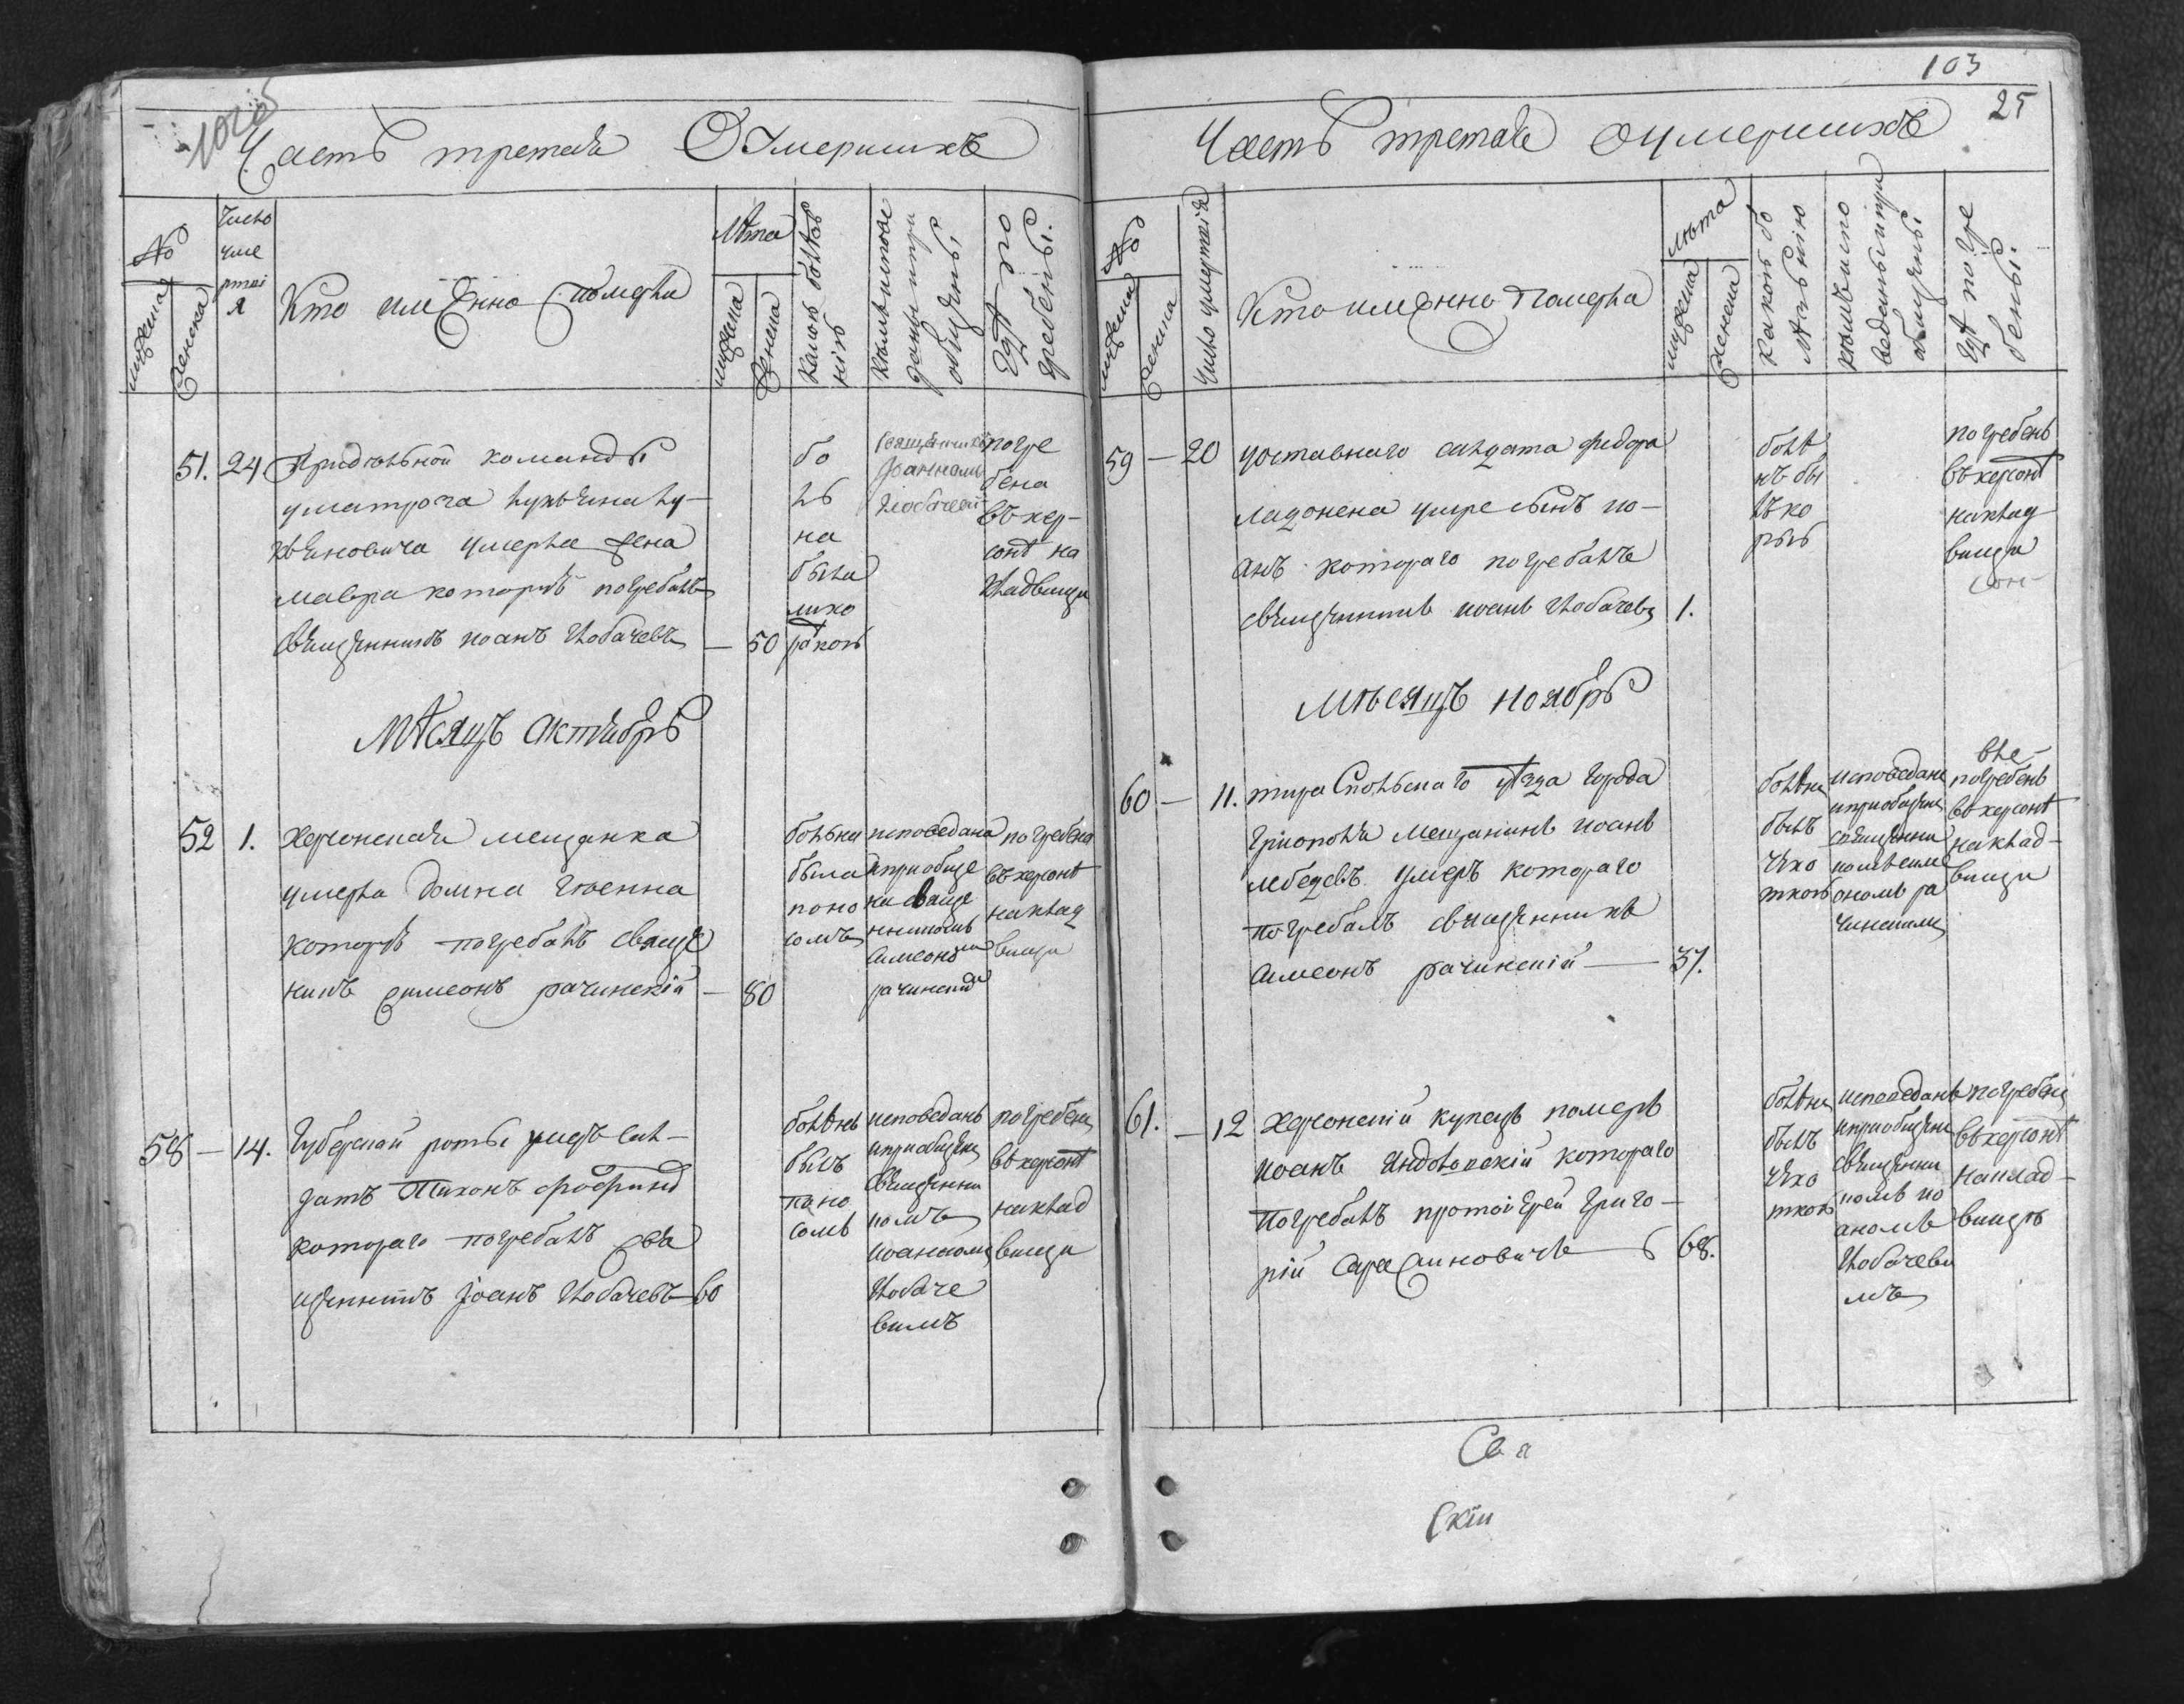 102об
Часть третая О Умершихъ
№
мужеска
женска
Число
уме
ртві
я
Кто имѢнно померли
Лѣта
мужеска
женска
Какою болѣз
нію
Гдѣ по
гребены.
51. 24 Придѣльной команды
у матроза
умерла жена
мавра которую погребалъ
Священникъ иоанъ Чобачевъ — 50
бо
ль
на
была
лихо
радкою
Священникъ
Иоанномъ
Чобачевы
погре
бена
въ хер-
сонѣ на
кладвищи
МѢсяцъ Актябрь
52 1. Херсонская мещанка
умерла домна
которую погребалъ свяще
никъ симеонъ рачинскій — 80
больна
была
поно
сомъ
исповедана
и приобще
на свяще
нникомъ
Симеоно
рачински
погребена
въ херсонѣ
на клад
вищи
58 — 14. Губерской роты умеръ сал-
датъ Тихонъ
котораго погребалъ свя
щенникъ Іоанъ Чобачевъ — 60
болѣнъ
былъ
поно
сомъ
исповеданъ
и приобщенъ
Священни
комъ
иоанномъ
Чобаче
вимъ
погребенъ
въ херсонѣ
на клад
вищи
103
25
Часть третая О умершихъ
№
мужеска
женска
Число умертвія
Кто именно Померла
лѣта
мужеска
женска
Какою бо
лѣзнію
Гдѣ погре
бены.
59 — 20 уоставнаго салдата федора
умре сынъ ио-
анъ котораго погребалъ
священникъ иоанъ Чобачевъ 1.
болѣ
нъ бы
лъ ко
рью
погребенъ
въ херсонѣ
на клад
вищи
Мѣсяцъ ноябрь
60 — 11. тираспольскаго уѣзда города
Григополя Мещанинъ иоанъ
лебедевъ умеръ котораго
погребалъ священникъ
Симеонъ рачинскій — 37.
болѣнъ
былъ
чехо
ткою
исповеданъ
и приобщенъ
священни
комъ симе
ономъ ра
чинскимъ
погребенъ
въ херсонѣ
на клад-
вищи
61. — 12 Херсонскій купецъ померъ
иоанъ котораго
Погребалъ протоіерей Григо-
рій — 68.
болѣнъ
былъ
чехо
ткою
исповеданъ
и приобщенъ
Священни
комъ ио
аномъ
Чобачеви
мъ
погребенъ
въ херсонѣ
на клад-
вищѣ
Свя
скіи